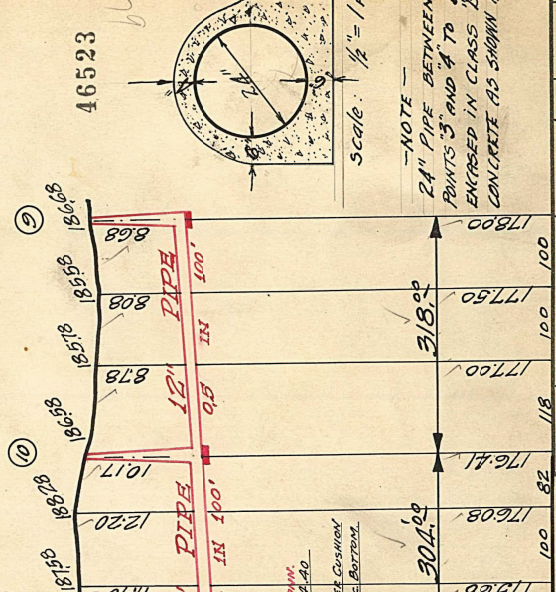 46523
24"
6"
scale: 1/2" = 1
—NOTE—
24" PIPE BETWEEN
POINTS "3" AND "4" TO
ENCASED IN CLASS
CONCRETE AS SHOWN
9
10
186.68
185.58
185.78
186.58
188.28
187.58
8.68
8.08
8.78
10.17
12.20
12" PIPE
0.5 IN 100'
PIPE
IN 100'
318.00
304.00
178.00
177.50
177.00
176.41
176.08
100
100
118
82
100
CUSHION
BOTTOM.